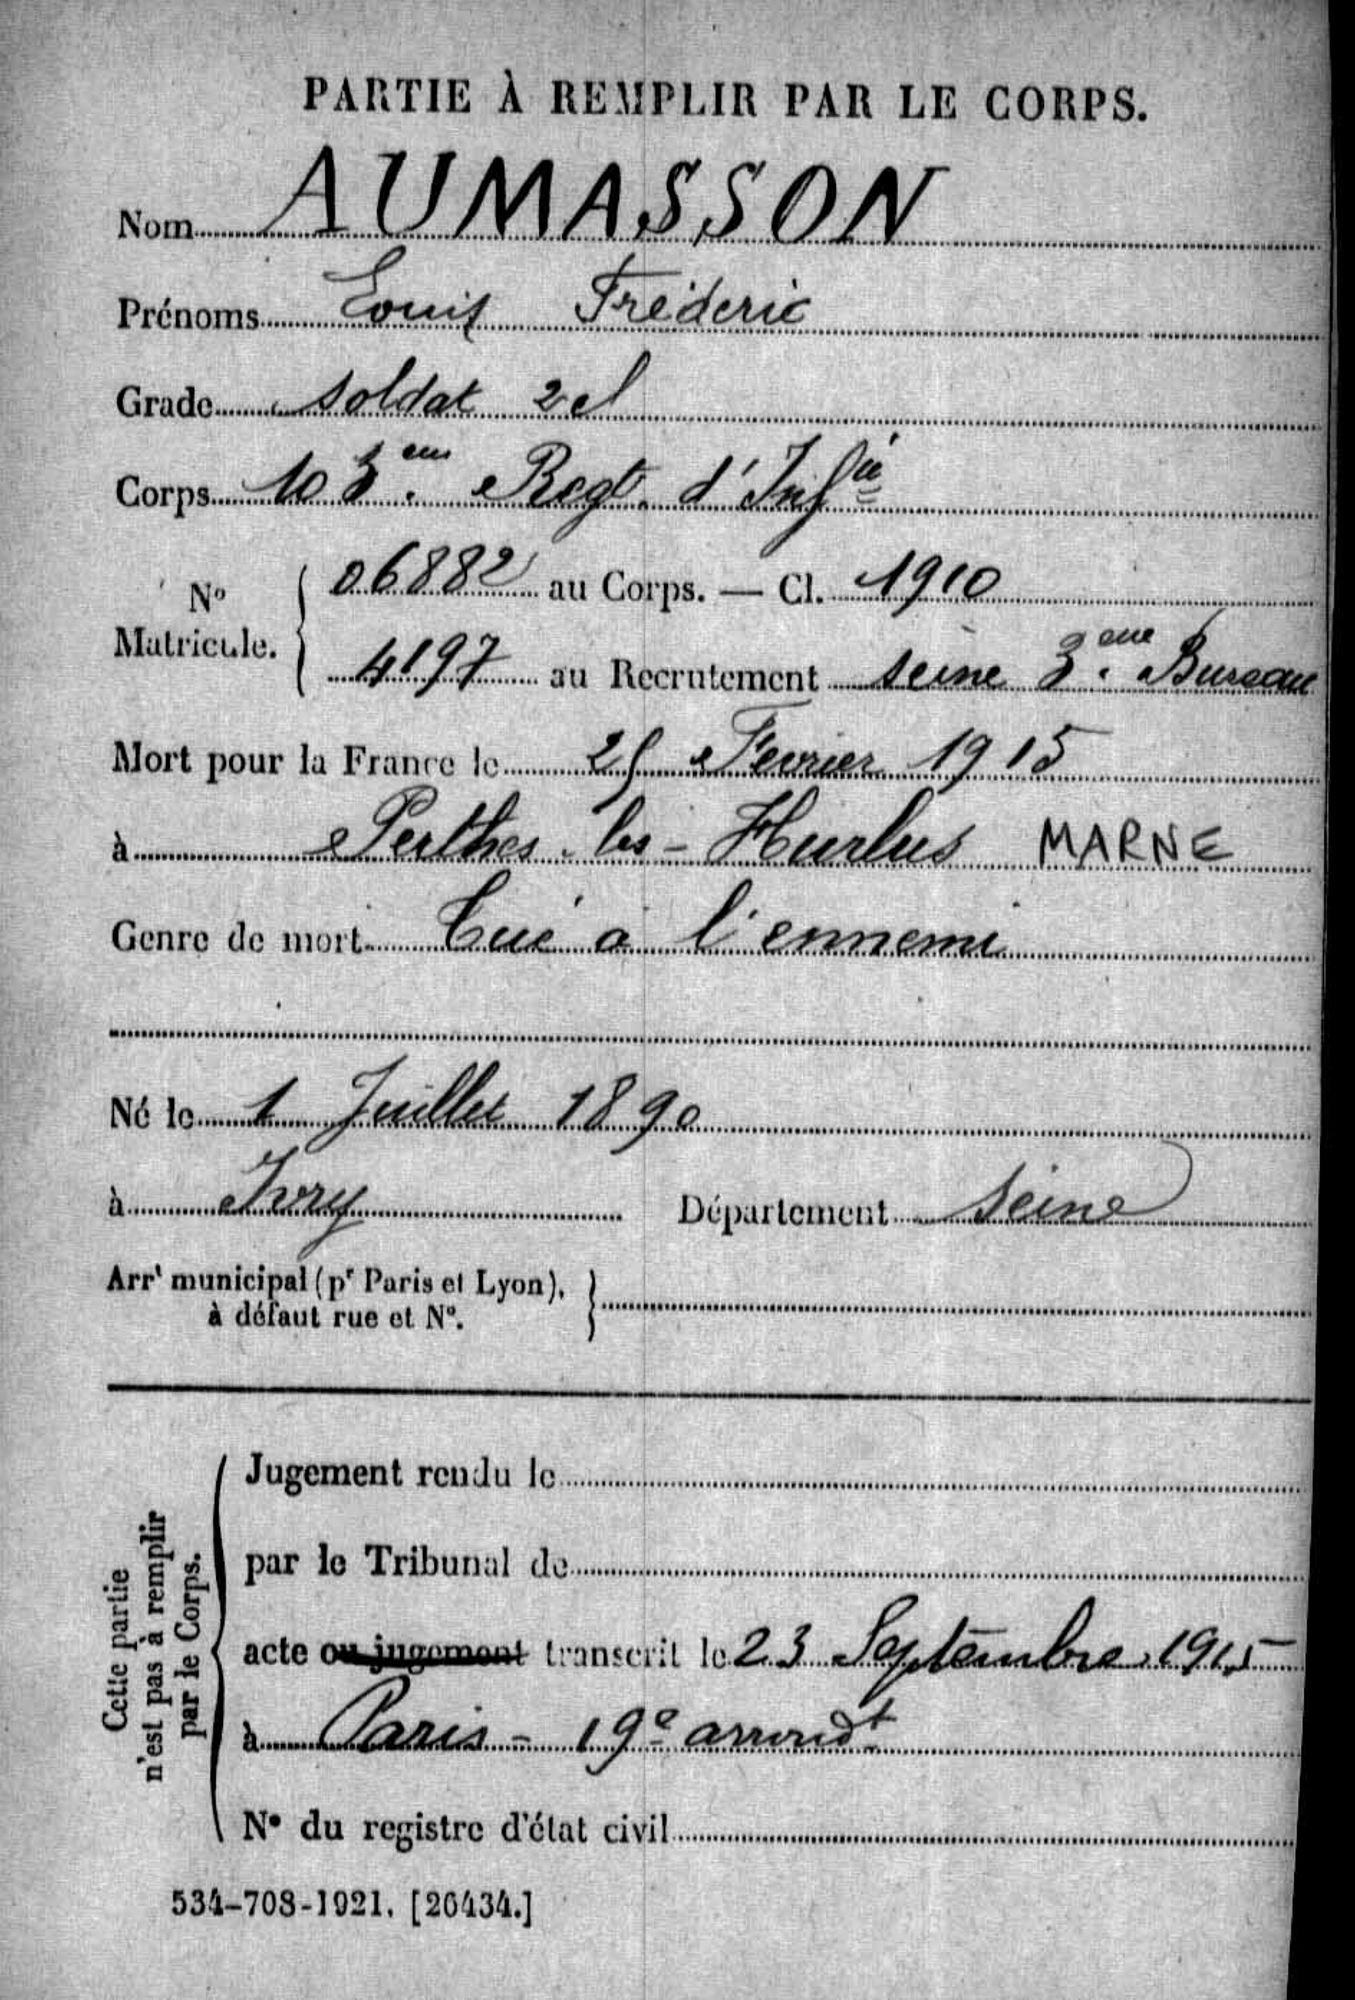 PARTIE À REMPLIR PAR LE CORPS.
Nom AUMASSON
Prénoms Louis Fréderic
Grade soldat 2 cl
Corps 103eme Regt. d'Infie
No Matricule. 06882 au Corps. — Cl. 1910
4197 au Recrutement seine 3eme Bureau
Mort pour la France le 25 Fevrier 1915
à Perthes-les-Hurlus MARNE
Genre de mort Tué à l'ennemi
Né le 1 Juillet 1890
à Ivry Département Seine
Arrt municipal (pr Paris et Lyon),
à défaut rue et N°.
Cette partie
n'est pas à remplir
par le Corps.
Jugement rendu le
par le Tribunal de
acte ou jugement transcrit le 23 Septembre 1915
à Paris - 19e arrondt
N° du registre d'état civil
534-708-1921. [26434.]